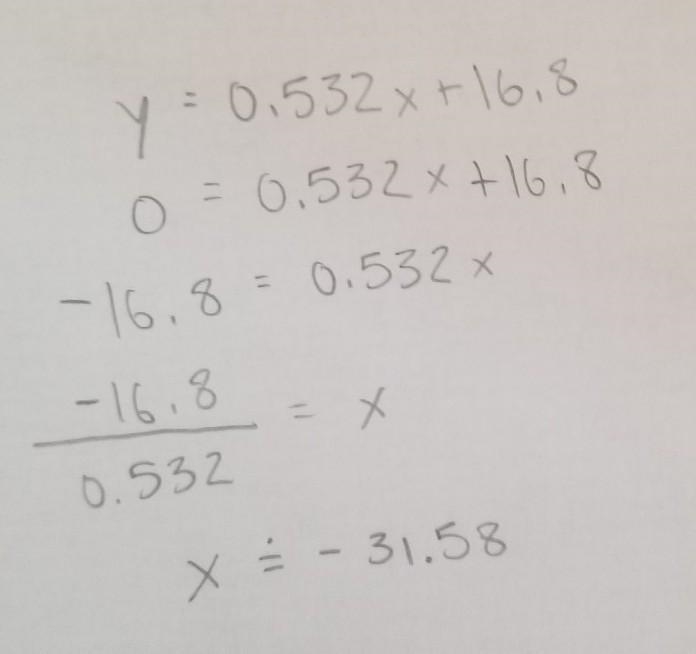 y = 0.532x + 16.8
0 = 0.532x + 16.8
-16.8 = 0.532x
-16.8
0.532 = x
x ≐ -31.58